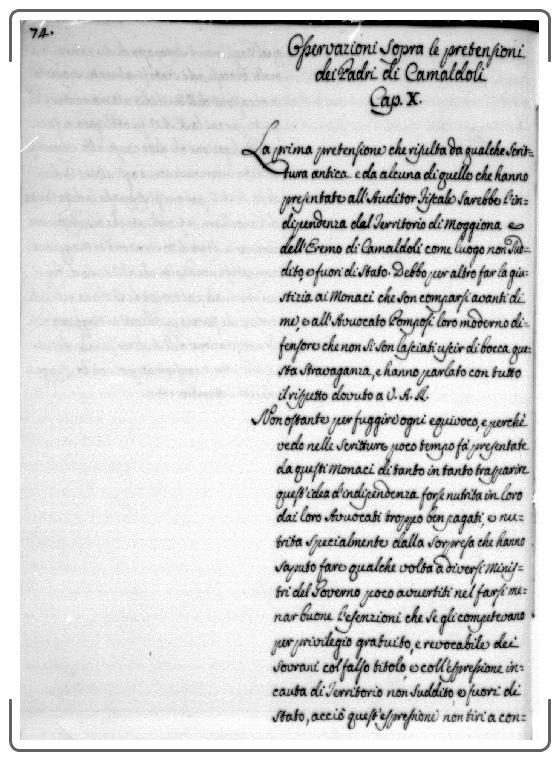 74.
Osservazioni sopra le pretensioni
dei Padri di Camaldoli
Cap. X.
La prima pretensione che risulta da qualche Scrit=
tura antica e da alcuna di quelle che hanno
presentate all'Auditor Fiscale sarebbe l'in=
dipendenza dal Territorio di Moggiona e
dell'Eremo di Camaldoli come luogo non sud=
dito, e fuori di Stato. Debbo per altro far la giu=
stizia ai Monaci che son comparsi avanti di
me e all'Avvocato Pomposi loro moderno di=
fensore che non si son lasciati uscir di bocca que=
sta stravaganza, e hanno parlato con tutto
il rispetto dovuto a V. A. R.
Non ostante per fuggire ogni equivoco, e perchè
vedo nelle Scritture poco tempo fà presentate
da questi Monaci di tanto in tanto trasparire
quest'idea d'indipendenza forse nutrita in loro
dai loro Avvocati troppo ben pagati, e nu=
trita specialmente dalla sorpresa che hanno
saputo fare qualche volta a diversi Minis=
tri del Governo poco avvertiti nel farsi me=
nar buone l'esenzioni che se gli competevano
per privilegio gratuito, e revocabile dei
Sovrani col falso titolo, e coll'espressione in=
cauta di Territorio non suddito, e fuori di
Stato, acciò quest'espressione non tiri a con=